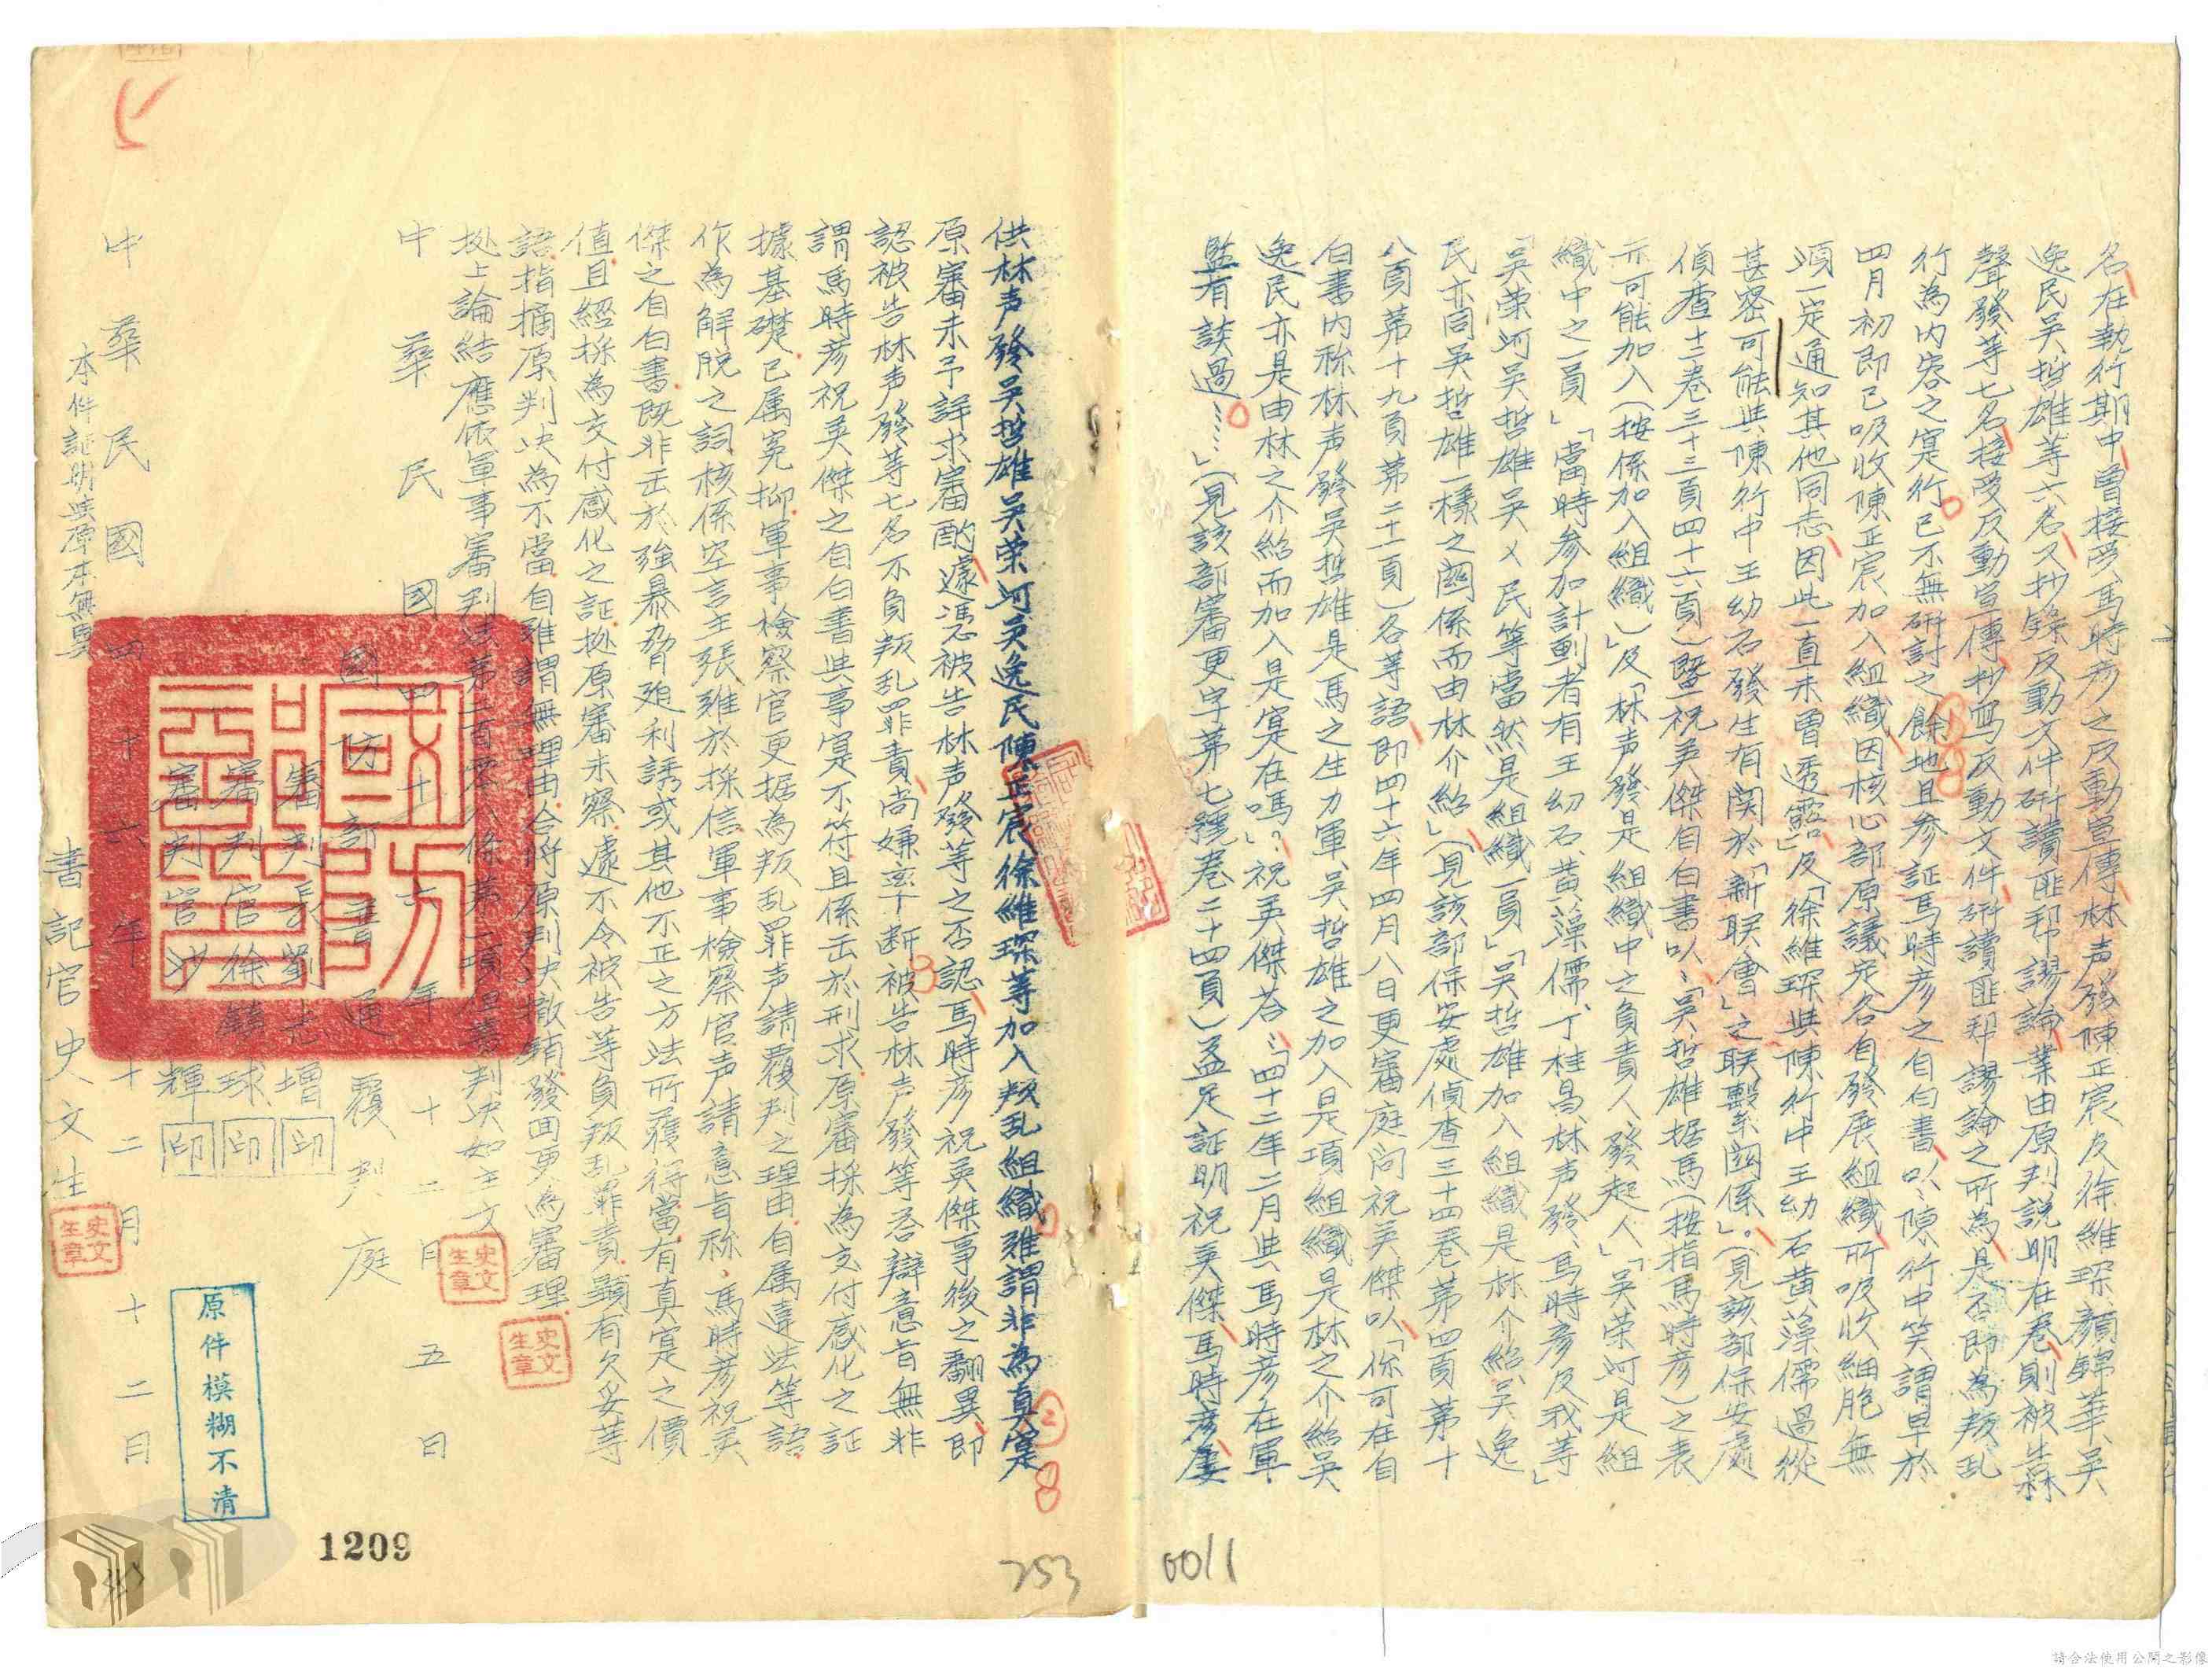 名在執行期中曾接受馬時彥之反動宣傳林声發陳正宸及徐維琛顏錦華吳
逸民吳哲雄等六名又抄錄反動文件研讀匪邦謬論業由原判説明在卷則被告林
聲發等七名接受反動宣傳抄寫反動文件研讀匪邦謬論之所為是否即為叛乱
行為內容之实行已不無研討之餘地且參証馬時彥之自白書以「陳行中笑謂早於
四月初即已吸收陳正宸加入組織因核心部原議定各自發展組織所吸收細胞無
須一定通知其他同志因此一直未曾透露」及「徐維琛與陳行中王幼石黄藻儒過從
甚密可能與陳行中王幼石發生有関於「新联會」之联繫関係」。(見該部保安處
偵查十二卷三十三頁四十六頁)暨祝英傑自白書以「吳哲雄据馬(按指馬時彥)之表
示可能加入(按係加入組織)」及「林声發是組織中之負責人發起人」「吳荣河是組
織中之一員」「當時參加計劃者有王幼石黄藻儒丁桂昌林声發馬時彥及我等」
「吳荣河吳哲雄吳乂民等當然是組織一員」「吳哲雄加入組織是林介紹吳逸
民亦同吳哲雄一樣之関係而由林介紹」(見該部保安處偵查三十四卷第四頁第十
八頁第十九頁第二十一頁)各等語即四十六年四月八日更審庭问祝英傑以「你可在自
白書內称林声發吳哲雄是馬之生力軍吳哲雄之加入是項組織是林之介紹吳
逸民亦是由林之介紹而加入是实在嗎?」祝英傑答:「四十二年二月與馬時彥在軍
監有談過……」(見該部審更字第七號卷二十四頁)益足証明祝英傑馬時彥屢
供林声發吳哲雄吳荣河吳逸民陳正宸徐維琛等加入叛乱組織难謂非為真寔
原審未予詳求審酌遽憑被告林声發等之否認馬時彥祝英傑事後之翻異即
認被告林声發等七名不負叛乱罪責尚嫌率断被告林声發等答辯意旨無非
謂馬時彥祝英傑之自白書與事寔不符且係出於刑求原審採為交付感化之証
據基礎已属冤抑軍事檢察官更据為叛乱罪声請覆判之理由自属違法等語
作為解脱之詞核係空言主張难於採信軍事檢察官声請意旨称馬時彥祝英
傑之自白書既非出於強暴脅迫利誘或其他不正之方法所獲得當有真寔之價
值且經採為交付感化之証拠原審未察遽不令被告等負叛乱罪責顯有欠妥等
語指摘原判决為不當自难謂無理由合將原判决撤銷發回更為審理
拠上論結應依軍事審判法第二百零八條第一項但書判决如主文
中華民國四十六年十二月五日
國防部普通覆判庭
審判長劉志增印
審判官徐鎮球印
審判官沙輝印
本件証明與原本無異
中華民國四十六年十二月十二日
書記官史文生
史文生章
史文生章
史文生章
原件模糊不清
1209
253
0011
請合法使用公開之影像